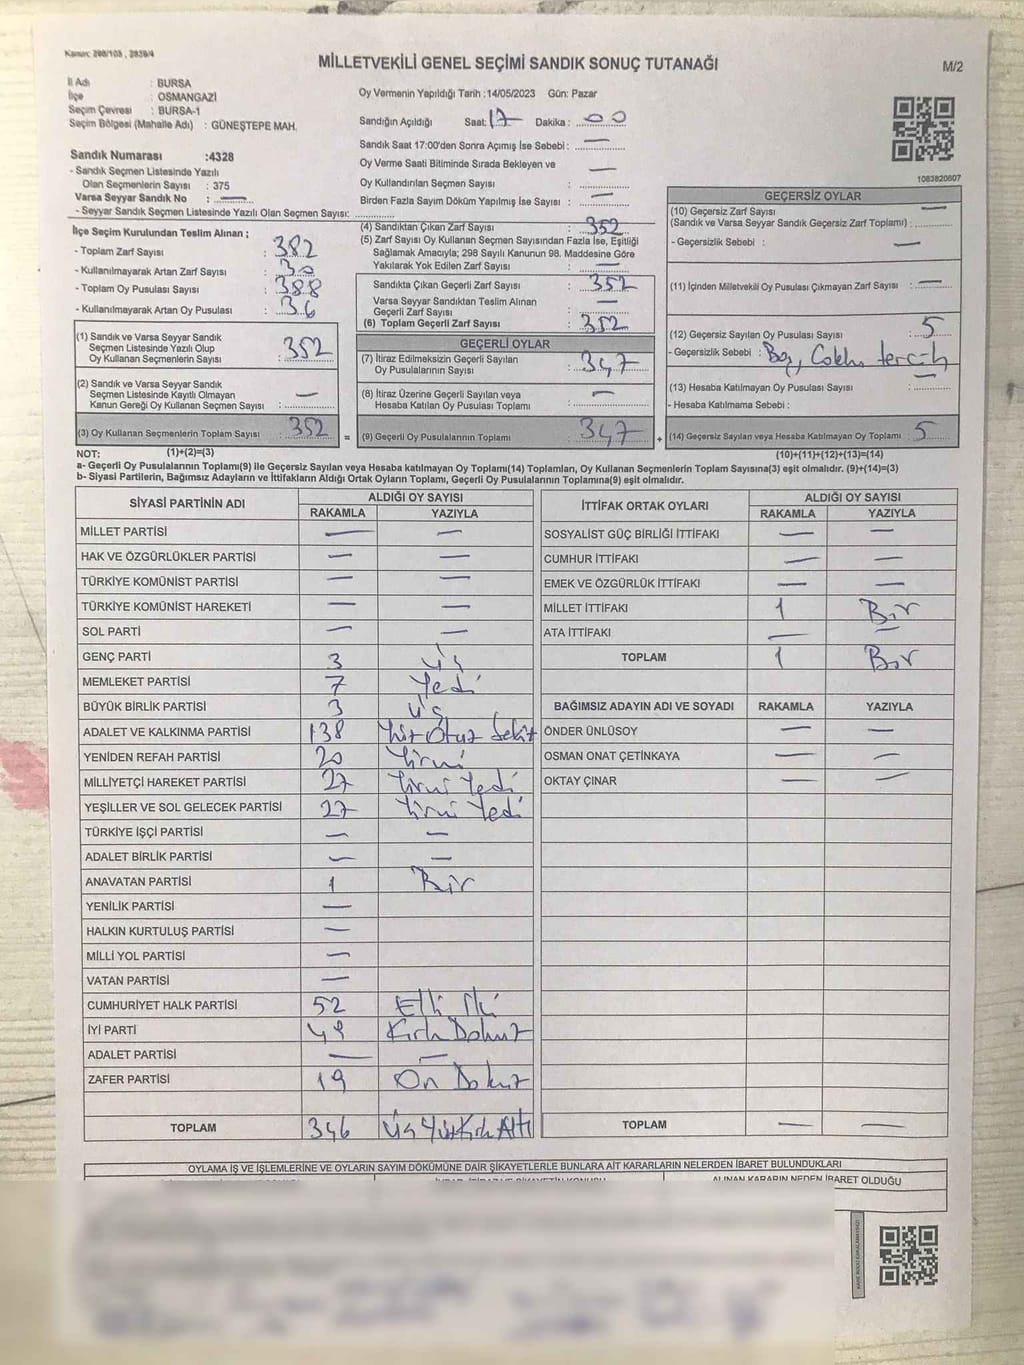 Kanun: 298/105 , 2839/4
MİLLETVEKİLİ GENEL SEÇİMİ SANDIK SONUÇ TUTANAĞI
M/2
İl Adı : BURSA
İlçe : OSMANGAZİ
Seçim Çevresi : BURSA-1
Seçim Bölgesi (Mahalle Adı) : GÜNEŞTEPE MAH.
Oy Vermenin Yapıldığı Tarih :14/05/2023 Gün: Pazar
Sandığın Açıldığı Saat: 17 Dakika : 00
Sandık Saat 17:00'den Sonra Açımış İse Sebebi : —
Oy Verme Saati Bitiminde Sırada Bekleyen ve
Oy Kullandırılan Seçmen Sayısı : —
Birden Fazla Sayım Döküm Yapılmış İse Sayısı : —
1083820807
Sandık Numarası :4328
- Sandık Seçmen Listesinde Yazılı
Olan Seçmenlerin Sayısı : 375
Varsa Seyyar Sandık No : —
- Seyyar Sandık Seçmen Listesinde Yazılı Olan Seçmen Sayısı:
İlçe Seçim Kurulundan Teslim Alınan ;
- Toplam Zarf Sayısı : 382
- Kullanılmayarak Artan Zarf Sayısı : 30
- Toplam Oy Pusulası Sayısı : 388
- Kullanılmayarak Artan Oy Pusulası : 36
(1) Sandık ve Varsa Seyyar Sandık
Seçmen Listesinde Yazılı Olup
Oy Kullanan Seçmenlerin Sayısı : 352
(2) Sandık ve Varsa Seyyar Sandık
Seçmen Listesinde Kayıtlı Olmayan
Kanun Gereği Oy Kullanan Seçmen Sayısı : —
(3) Oy Kullanan Seçmenlerin Toplam Sayısı : 352
(4) Sandıktan Çıkan Zarf Sayısı : 352
(5) Zarf Sayısı Oy Kullanan Seçmen Sayısından Fazla İse, Eşitliği
Sağlamak Amacıyla; 298 Sayılı Kanunun 98. Maddesine Göre
Yakılarak Yok Edilen Zarf Sayısı : —
Sandıkta Çıkan Geçerli Zarf Sayısı : 352
Varsa Seyyar Sandıktan Teslim Alınan
Geçerli Zarf Sayısı : —
(6) Toplam Geçerli Zarf Sayısı : 352
GEÇERLİ OYLAR
(7) İtiraz Edilmeksizin Geçerli Sayılan
Oy Pusulalarının Sayısı : 347
(8) İtiraz Üzerine Geçerli Sayılan veya
Hesaba Katılan Oy Pusulası Toplamı : —
= (9) Geçerli Oy Pusulalarının Toplamı : 347
GEÇERSİZ OYLAR
(10) Geçersiz Zarf Sayısı
(Sandık ve Varsa Seyyar Sandık Geçersiz Zarf Toplamı) : —
- Geçersizlik Sebebi : —
(11) İçinden Milletvekili Oy Pusulası Çıkmayan Zarf Sayısı : —
(12) Geçersiz Sayılan Oy Pusulası Sayısı : 5
- Geçersizlik Sebebi : Boş, Çoklu tercih
(13) Hesaba Katılmayan Oy Pusulası Sayısı : —
- Hesaba Katılmama Sebebi :
+ (14) Geçersiz Sayılan veya Hesaba Katılmayan Oy Toplamı : 5
NOT: (1)+(2)=(3) (10)+(11)+(12)+(13)=(14)
a- Geçerli Oy Pusulalarının Toplamı(9) ile Geçersiz Sayılan veya Hesaba katılmayan Oy Toplamı(14) Toplamları, Oy Kullanan Seçmenlerin Toplam Sayısına(3) eşit olmalıdır. (9)+(14)=(3)
b- Siyasi Partilerin, Bağımsız Adayların ve İttifakların Aldığı Ortak Oyların Toplamı, Geçerli Oy Pusulalarının Toplamına(9) eşit olmalıdır.
SİYASİ PARTİNİN ADI ALDIĞI OY SAYISI
RAKAMLA YAZIYLA
MİLLET PARTİSİ — —
HAK VE ÖZGÜRLÜKLER PARTİSİ — —
TÜRKİYE KOMÜNİST PARTİSİ — —
TÜRKİYE KOMÜNİST HAREKETİ — —
SOL PARTİ — —
GENÇ PARTİ 3 Üç
MEMLEKET PARTİSİ 7 Yedi
BÜYÜK BİRLİK PARTİSİ 3 Üç
ADALET VE KALKINMA PARTİSİ 138 Yüz Otuz Sekiz
YENİDEN REFAH PARTİSİ 20 Yirmi
MİLLİYETÇİ HAREKET PARTİSİ 27 Yirmi Yedi
YEŞİLLER VE SOL GELECEK PARTİSİ 27 Yirmi Yedi
TÜRKİYE İŞÇİ PARTİSİ — —
ADALET BİRLİK PARTİSİ — —
ANAVATAN PARTİSİ 1 Bir
YENİLİK PARTİSİ —
HALKIN KURTULUŞ PARTİSİ —
MİLLİ YOL PARTİSİ —
VATAN PARTİSİ —
CUMHURİYET HALK PARTİSİ 52 Elli İki
İYİ PARTİ 49 Kırk Dokuz
ADALET PARTİSİ — —
ZAFER PARTİSİ 19 On Dokuz
TOPLAM 346 Üç Yüz Kırk Altı
İTTİFAK ORTAK OYLARI ALDIĞI OY SAYISI
RAKAMLA YAZIYLA
SOSYALİST GÜÇ BİRLİĞİ İTTİFAKI — —
CUMHUR İTTİFAKI — —
EMEK VE ÖZGÜRLÜK İTTİFAKI — —
MİLLET İTTİFAKI 1 Bir
ATA İTTİFAKI — —
TOPLAM 1 Bir
BAĞIMSIZ ADAYIN ADI VE SOYADI RAKAMLA YAZIYLA
ÖNDER ÜNLÜSOY — —
OSMAN ONAT ÇETİNKAYA — —
OKTAY ÇINAR — —
TOPLAM — —
OYLAMA İŞ VE İŞLEMLERİNE VE OYLARIN SAYIM DÖKÜMÜNE DAİR ŞİKAYETLERLE BUNLARA AİT KARARLARIN NELERDEN İBARET BULUNDUKLARI
ALINAN KARARIN NEDEN İBARET OLDUĞU